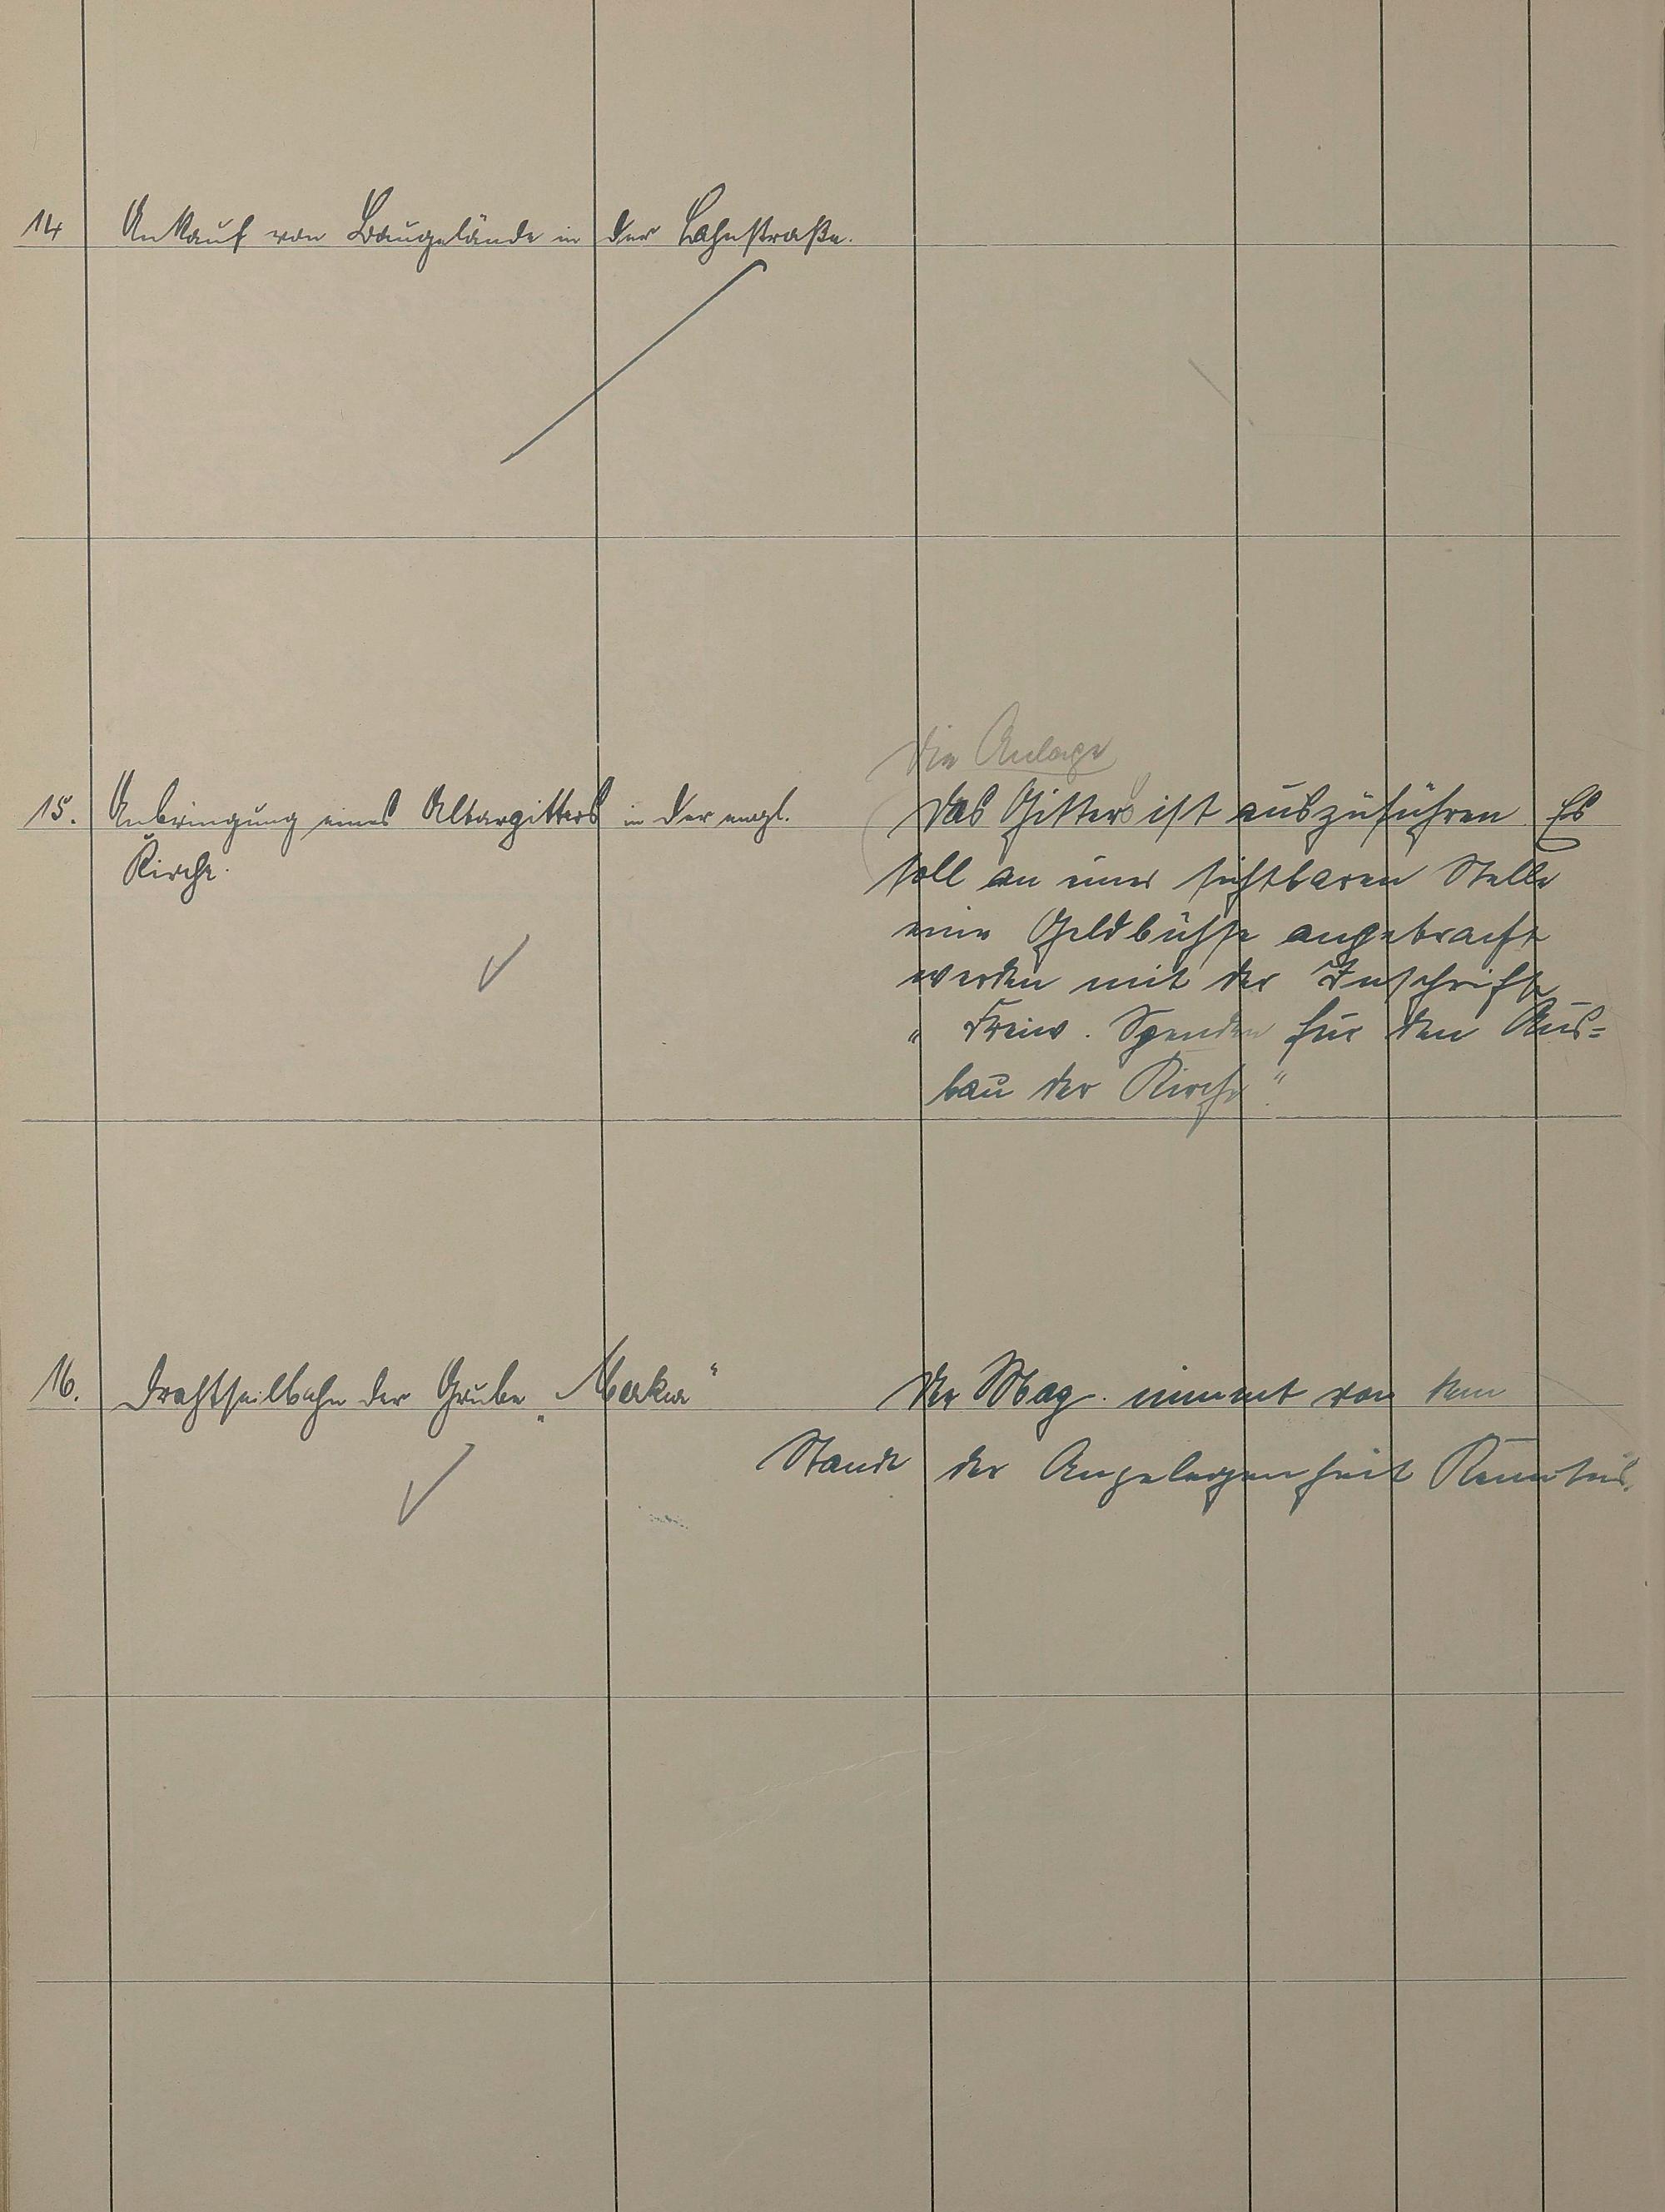 14 Ankauf von Baugelände in der Lahnstraße.
die Anlage
15. Anbringung eines Altargitters in der engl. Das Gitters ist auszuführen Es
Kirche. soll an einer sichtbaren Stelle
eine Geldbüchse angebracht
werden mit der Inschrift
„Freiw. Spenden für den Aus=
bau der Kirche"
16. Drahtseilbahn der Grube „Merkur" Der Mag. nimmt von dem
Stande der Angelegenheit Kenntnis.